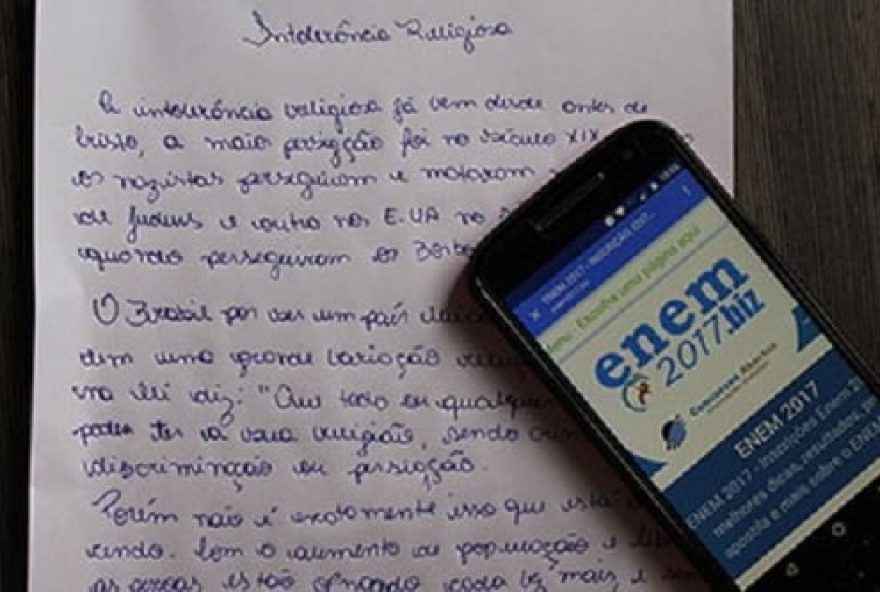 Intolerância Religiosa
A intolerância religiosa já vem desde antes de
Cristo, a maio persigção foi no século XIX
os nazistas perseguiram e mataram
de Judeus e outro nos E.UA no
quando perseguiram os
O Brasil por ser um país
dem uma grande variação
na lei diz: "Que todo em qualquer
poden ter a sua religião, sendo crim
discriminação ou persigção.
Porém não é exatamente isso que está
rendo. Com o aumento de população e
as pessoas estão opinando cada vez mais, e
ENEM 2017 - INSCRIÇÃO 201...
Menu - Escolha uma página aqui
enem
2017.biz
Concursos Abertos
ENEM 2017
ENEM 2017 - Inscrições Enem 2
melhores dicas, resultados,
apostila e mais sobre o ENEM